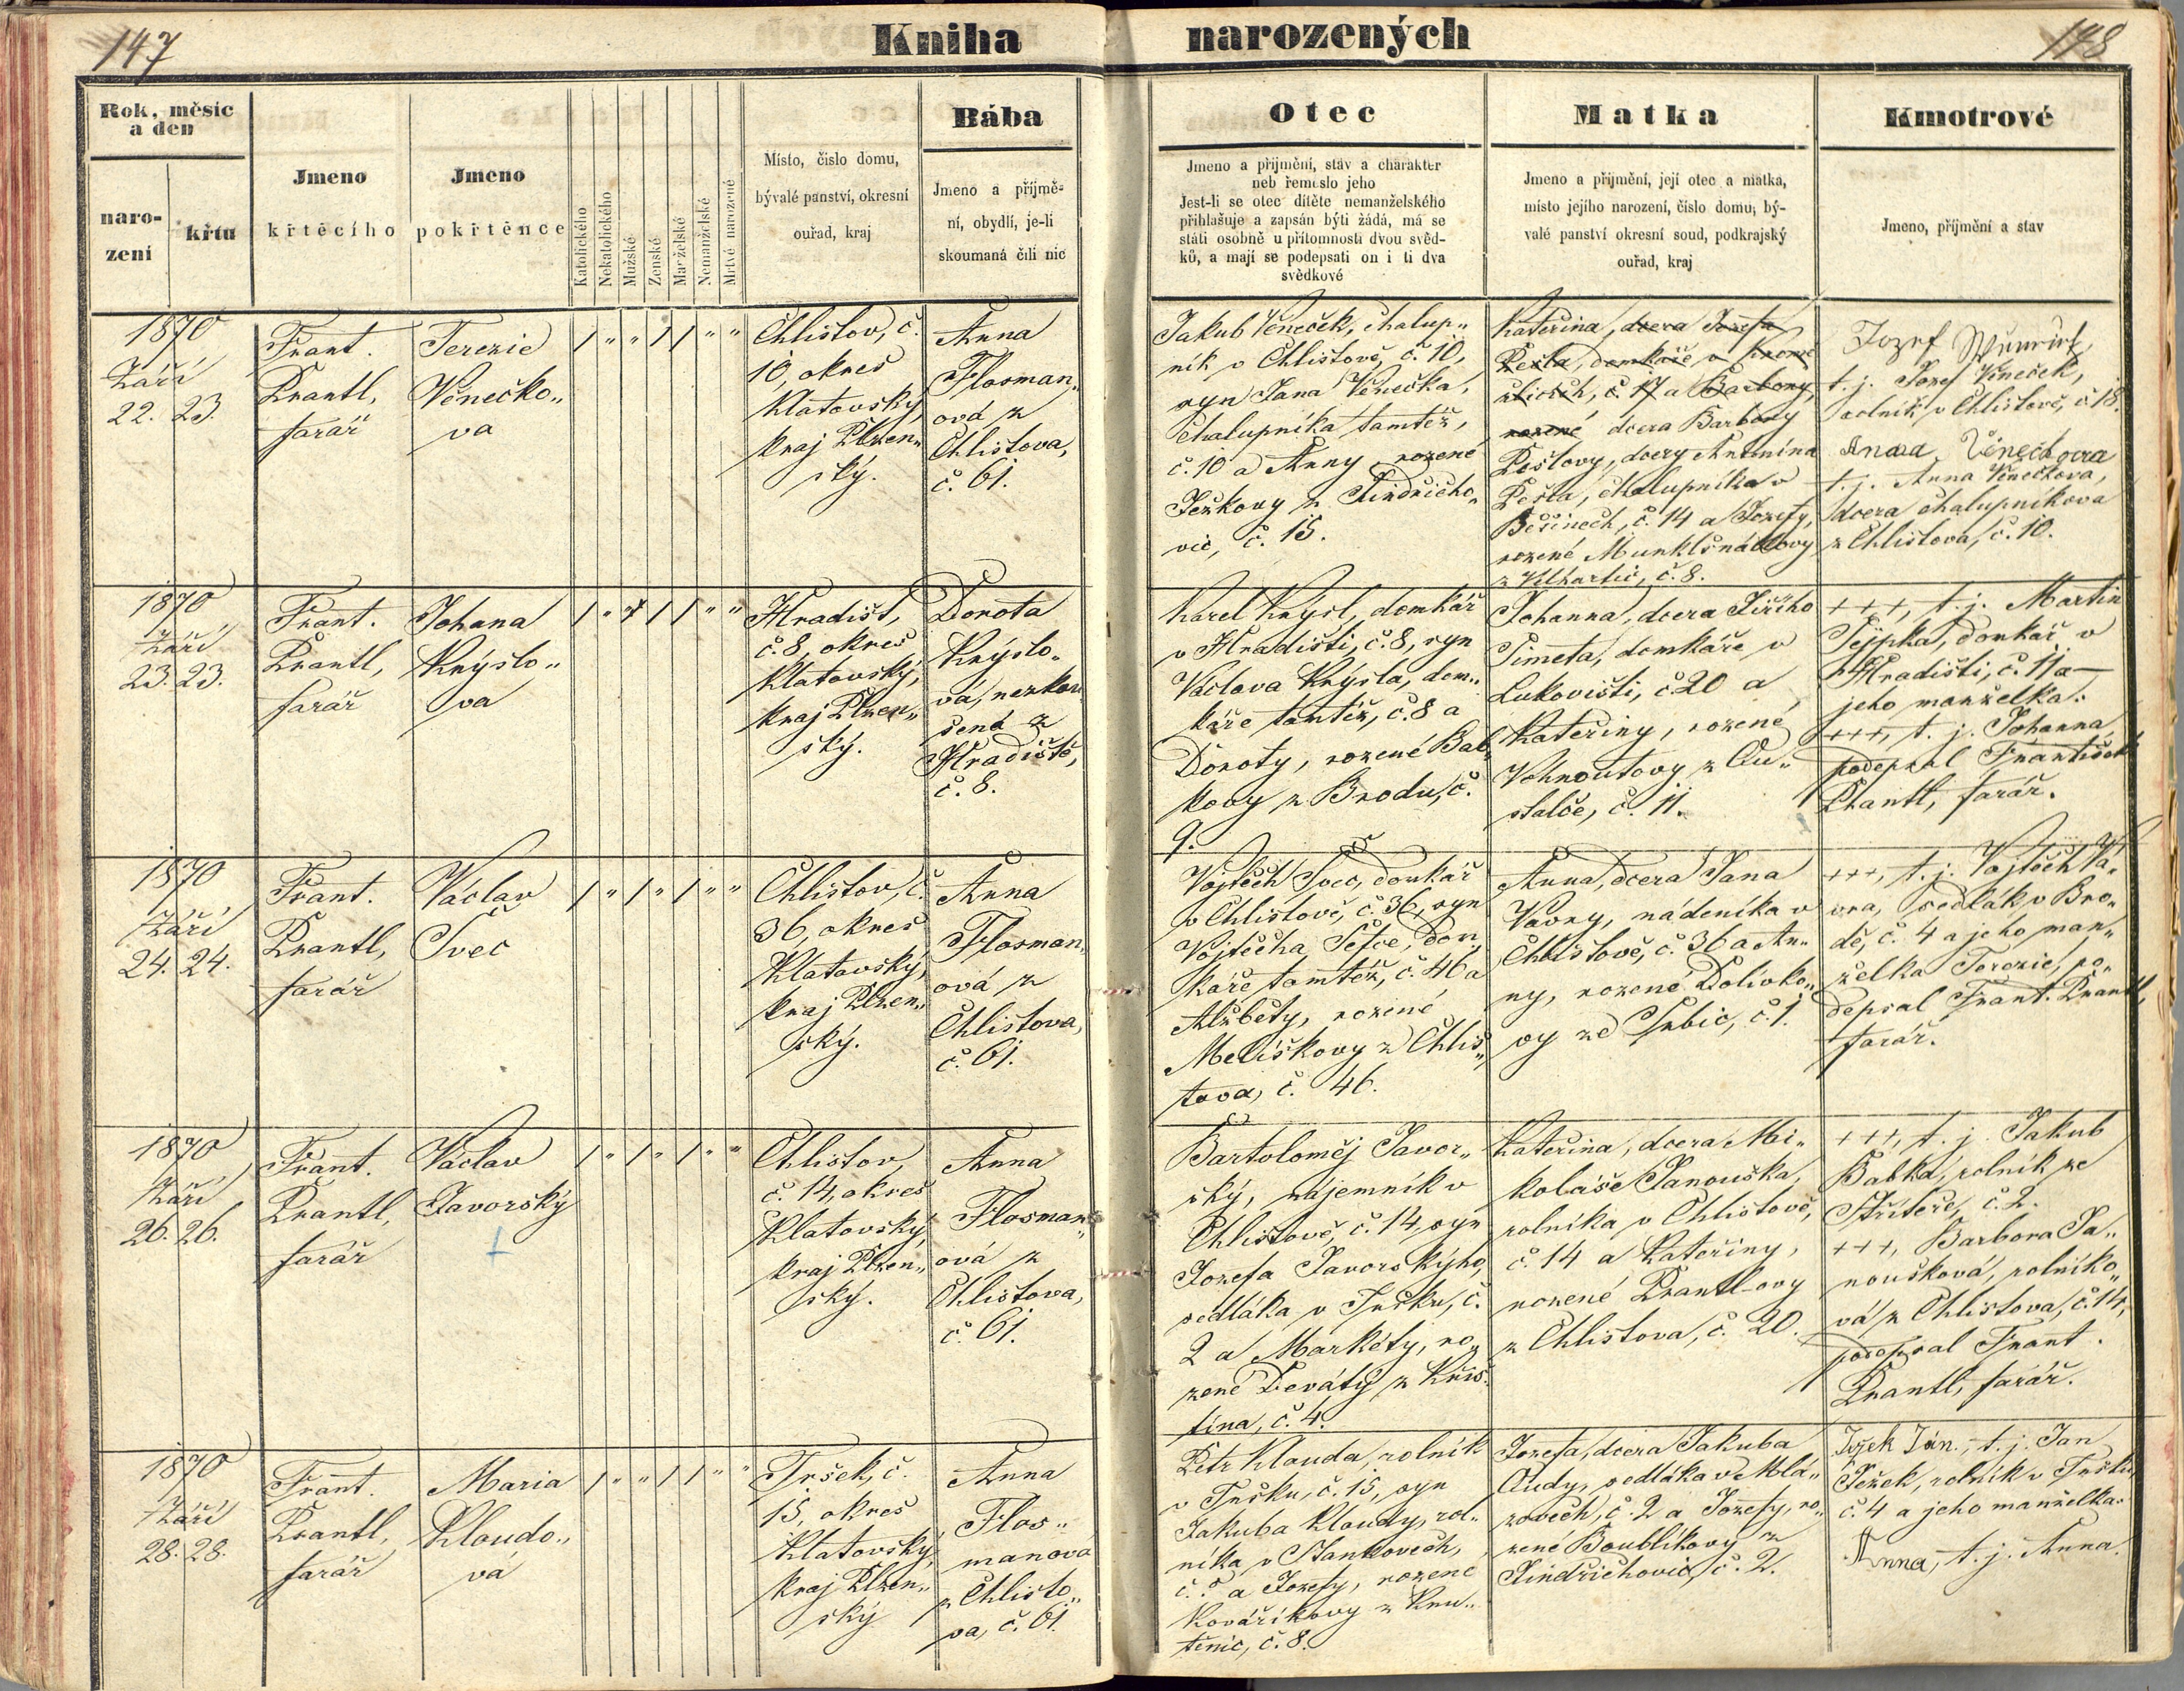 147
Kniha
narozených
148
Rok, měsíc
a den
naro-
zení
křtu
Jmeno
křtěcího
Jmeno
pokřtěnce
Katolického
Nekatolického
Mužské
Ženské
Manželské
Nemanželské
Mrtvé narozené
Místo, číslo domu,
bývalé panství, okresní
ouřad, kraj
Bába
Jmeno a příjmě-
ní, obydlí, je-li
skoumaná čili nic
Otec
Jmeno a příjmění, stáv a charakter
neb řemeslo jeho
Jest-li se otec dítěte nemanželského
přihlašuje a zapsán býti žádá, má se
státi osobně u přítomnosti dvou svěd-
ků, a mají se podepsati on i ti dva
svědkové
Matka
Jmeno a příjmění, její otec a matka,
místo jejího narození, číslo domu, bý-
valé panství okresní soud, podkrajský
ouřad, kraj
Kmotrové
Jmeno, příjmění a stav
1870
Září
22. 23.
Frant.
Prantl,
farář
Terezie
Věnečko„
va
/ „ „ / / „ „
Chlistov, č.
10, okres
Klatovský,
kraj Plzen„
ský.
Anna
Flosman„
ová z
Chlistova,
č. 61.
Jakub Věneček, chalup„
ník v Chlistově, č. 10,
syn Jana Věnečka,
chalupníka tamtéž,
č. 10 a Anny rozené
Ježkovy z Jindřicho„
vic, č. 15.
Kateřina, dcera Josefa
Pešla, domkáře v
č. 17 a Barbory,
rozené dcera Barbory
Pešlovy, dcery Antonína
Pešla, chalupníka v
Běšinech, č. 14 a Josefy,
rozené
z Vilhartic, č. 8.
Jozef
t. j. Josef Věneček,
rolník v Chlistově, č. 18.
Anna Věnečkova
t. j. Anna Věnečkova,
dcera chalupníkova
z Chlistova, č. 10.
1870
Září
23. 23.
Frant.
Prantl,
farář
Johana
Krýslo„
va
Hradišť,
č. 8, okres
Klatovský,
kraj Plzen„
ský.
Dorota
Krýslo„
vá, nezkou
šená z
Hradiště,
č. 8.
Karel Krýsl, domkář
v Hradišti, č. 8, syn
Václava Krýsla, dom„
káře tamtéž, č. 8 a
Doroty, rozené Bal„
kovy z Brodu, č.
9.
Johanna, dcera Jiřího
Šimeta, domkáře v
Lukovišti, č 20 a
Kateřiny, rozené
Vohnoutovy z Ou„
stalče, č. 11.
+++, t. j. Martin
Šejpka, domkář v
Hradišti, č. 11 a
jeho manželka:
+++, t. j. Johanna,
podepsal František
Prantl, farář.
1870
Září
24. 24.
Frant.
Prantl,
farář
Václav
Švec
/ „ / „ / „ „
Chlistov, č.
36, okres
Klatovský,
kraj Plzen„
ský.
Anna
Flosman„
ová z
Chlistova,
č. 61.
Vojtěch Švec, domkář
v Chlistově, č. 36, syn
Vojtěcha Šefce, dom
káře tamtéž, č. 46 a
Alžběty, rozené
Melíškovy z Chlis„
tova, č. 46.
Anna, dcera Jana
Vávry, nádeníka v
Chlistově, č. 36 a An„
ny, rozené Dolivko„
vy ze Srbic, č. 1.
+++, t. j. Vojtěch Vá„
vra, sedlák v Bro„
dě, č. 4 a jeho man„
želka Terezie, po„
depsal Frant. Prantl,
farář.
1870
Září
26. 26.
Frant.
Prantl,
farář
Václav
Javorský
/ „ / „ / „ „
Chlistov,
č. 14, okres
Klatovský,
kraj Plzen„
ský.
Anna
Flosman„
ová z
Chlistova,
č. 61.
Bartoloměj Javor„
ský, nájemník v
Chlistově, č. 14, syn
Jozefa Javorskýho,
sedláka v Tršku, č.
2 a Markéty, ro„
zené Deváty z Křiš„
tína, č. 4.
Kateřina, dcera Mi„
koláše Janouška,
rolníka v Chlistově,
č. 14 a Kateřiny,
rozené Prantl-ovy
z Chlistova, č. 20.
+++, t. j. Jakub
Babka, rolník ze
Střiteře, č. 2.
+++, Barbora Ja„
noušková, rolníko„
vá z Chlistova, č. 14,
podepsal Frant.
Prantl, farář.
1870
Září
28. 28.
Frant.
Prantl,
farář
Maria
Kloudo„
vá
/ „ „ / / „ „
Tršek, č.
15, okres
Klatovský,
kraj Plzen„
ský
Anna
Flos„
manova
z Chlisto„
va, č. 61.
Petr Klouda, rolník
v Tršku, č. 15, syn
Jakuba Kloudy, rol„
níka v Stankovech,
č. 5 a Josefy, rozené
Kováříkovy z Kru„
těnic, č. 8.
Josefa, dcera Jakuba
Oudy, sedláka v Mlá„
zovech, č. 2 a Jozefy, ro„
zené Boublíkovy z
Jindřichovic, č. 2.
Ježek Ján., t. j. Jan
Ježek, rolník v Tršku
č. 4 a jeho manželka:
Anna, t. j. Anna.